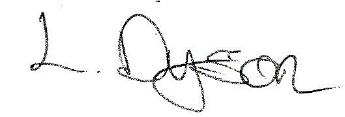 L. Dyson